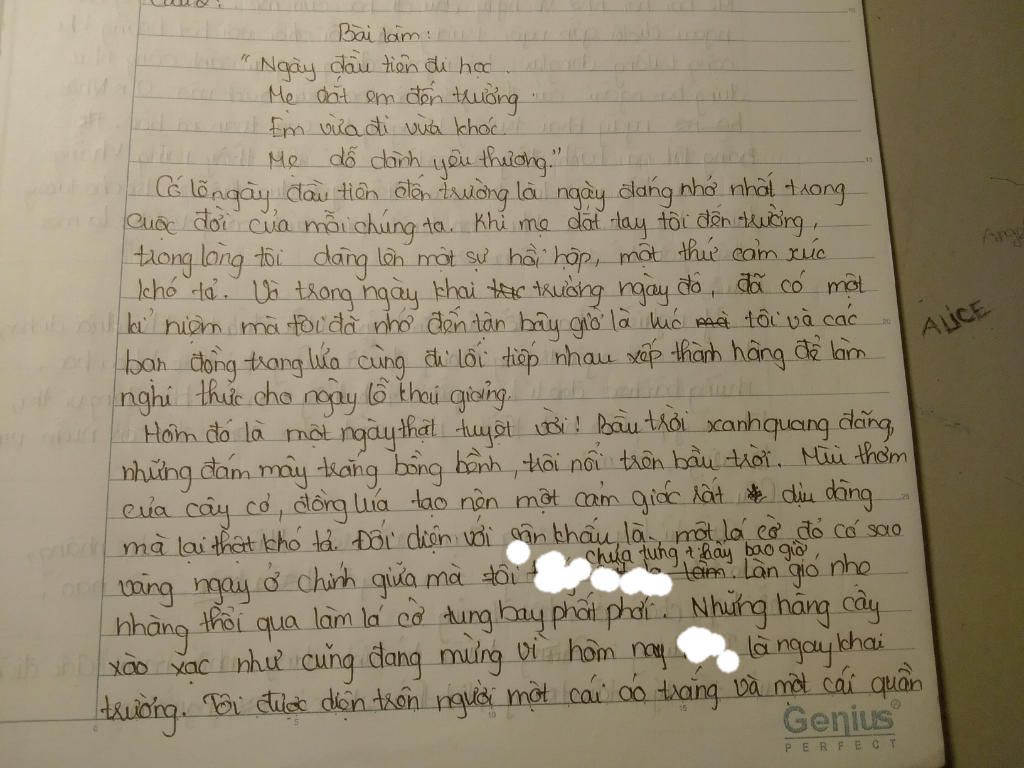 Bài làm:
"Ngày đầu tiên đi học.
Mẹ dắt em đến trường
Em vừa đi vừa khóc
Mẹ dỗ dành yêu thương."
Có lẽ ngày đầu tiên đến trường là ngày đáng nhớ nhất trong
cuộc đời của mỗi chúng ta. Khi mẹ dắt tay tôi đến trường,
trong lòng tôi dâng lên một sự hồi hộp, một thứ cảm xúc
khó tả. Và trong ngày khai trường ngày đó, đã có một
kỉ niệm mà tôi đã nhớ đến tận bây giờ là lúc tôi và các
bạn đồng trang lứa cùng đi lối tiếp nhau xếp thành hàng để làm
nghi thức cho ngày lễ khai giảng.
Hôm đó là một ngày thật tuyệt vời! Bầu trời xanh quang đãng,
những đám mây trắng bồng bềnh, trôi nổi trên bầu trời. Mùi thơm
của cây cỏ, đồng lúa tạo nên một cảm giác rất dịu dàng
mà lại thật khó tả. Đối diện với sân khấu là một lá cờ đỏ có sao
chưa từng thấy bao giờ
vàng ngay ở chính giữa mà tôi làm. Làn gió nhẹ
nhàng thổi qua làm lá cờ tung bay phất phới. Những hàng cây
xào xạc như cũng đang mừng vì hôm nay là ngay khai
trường. Tôi được diện trên người một cái áo trắng và một cái quần
ALICE
Genius
PERFECT